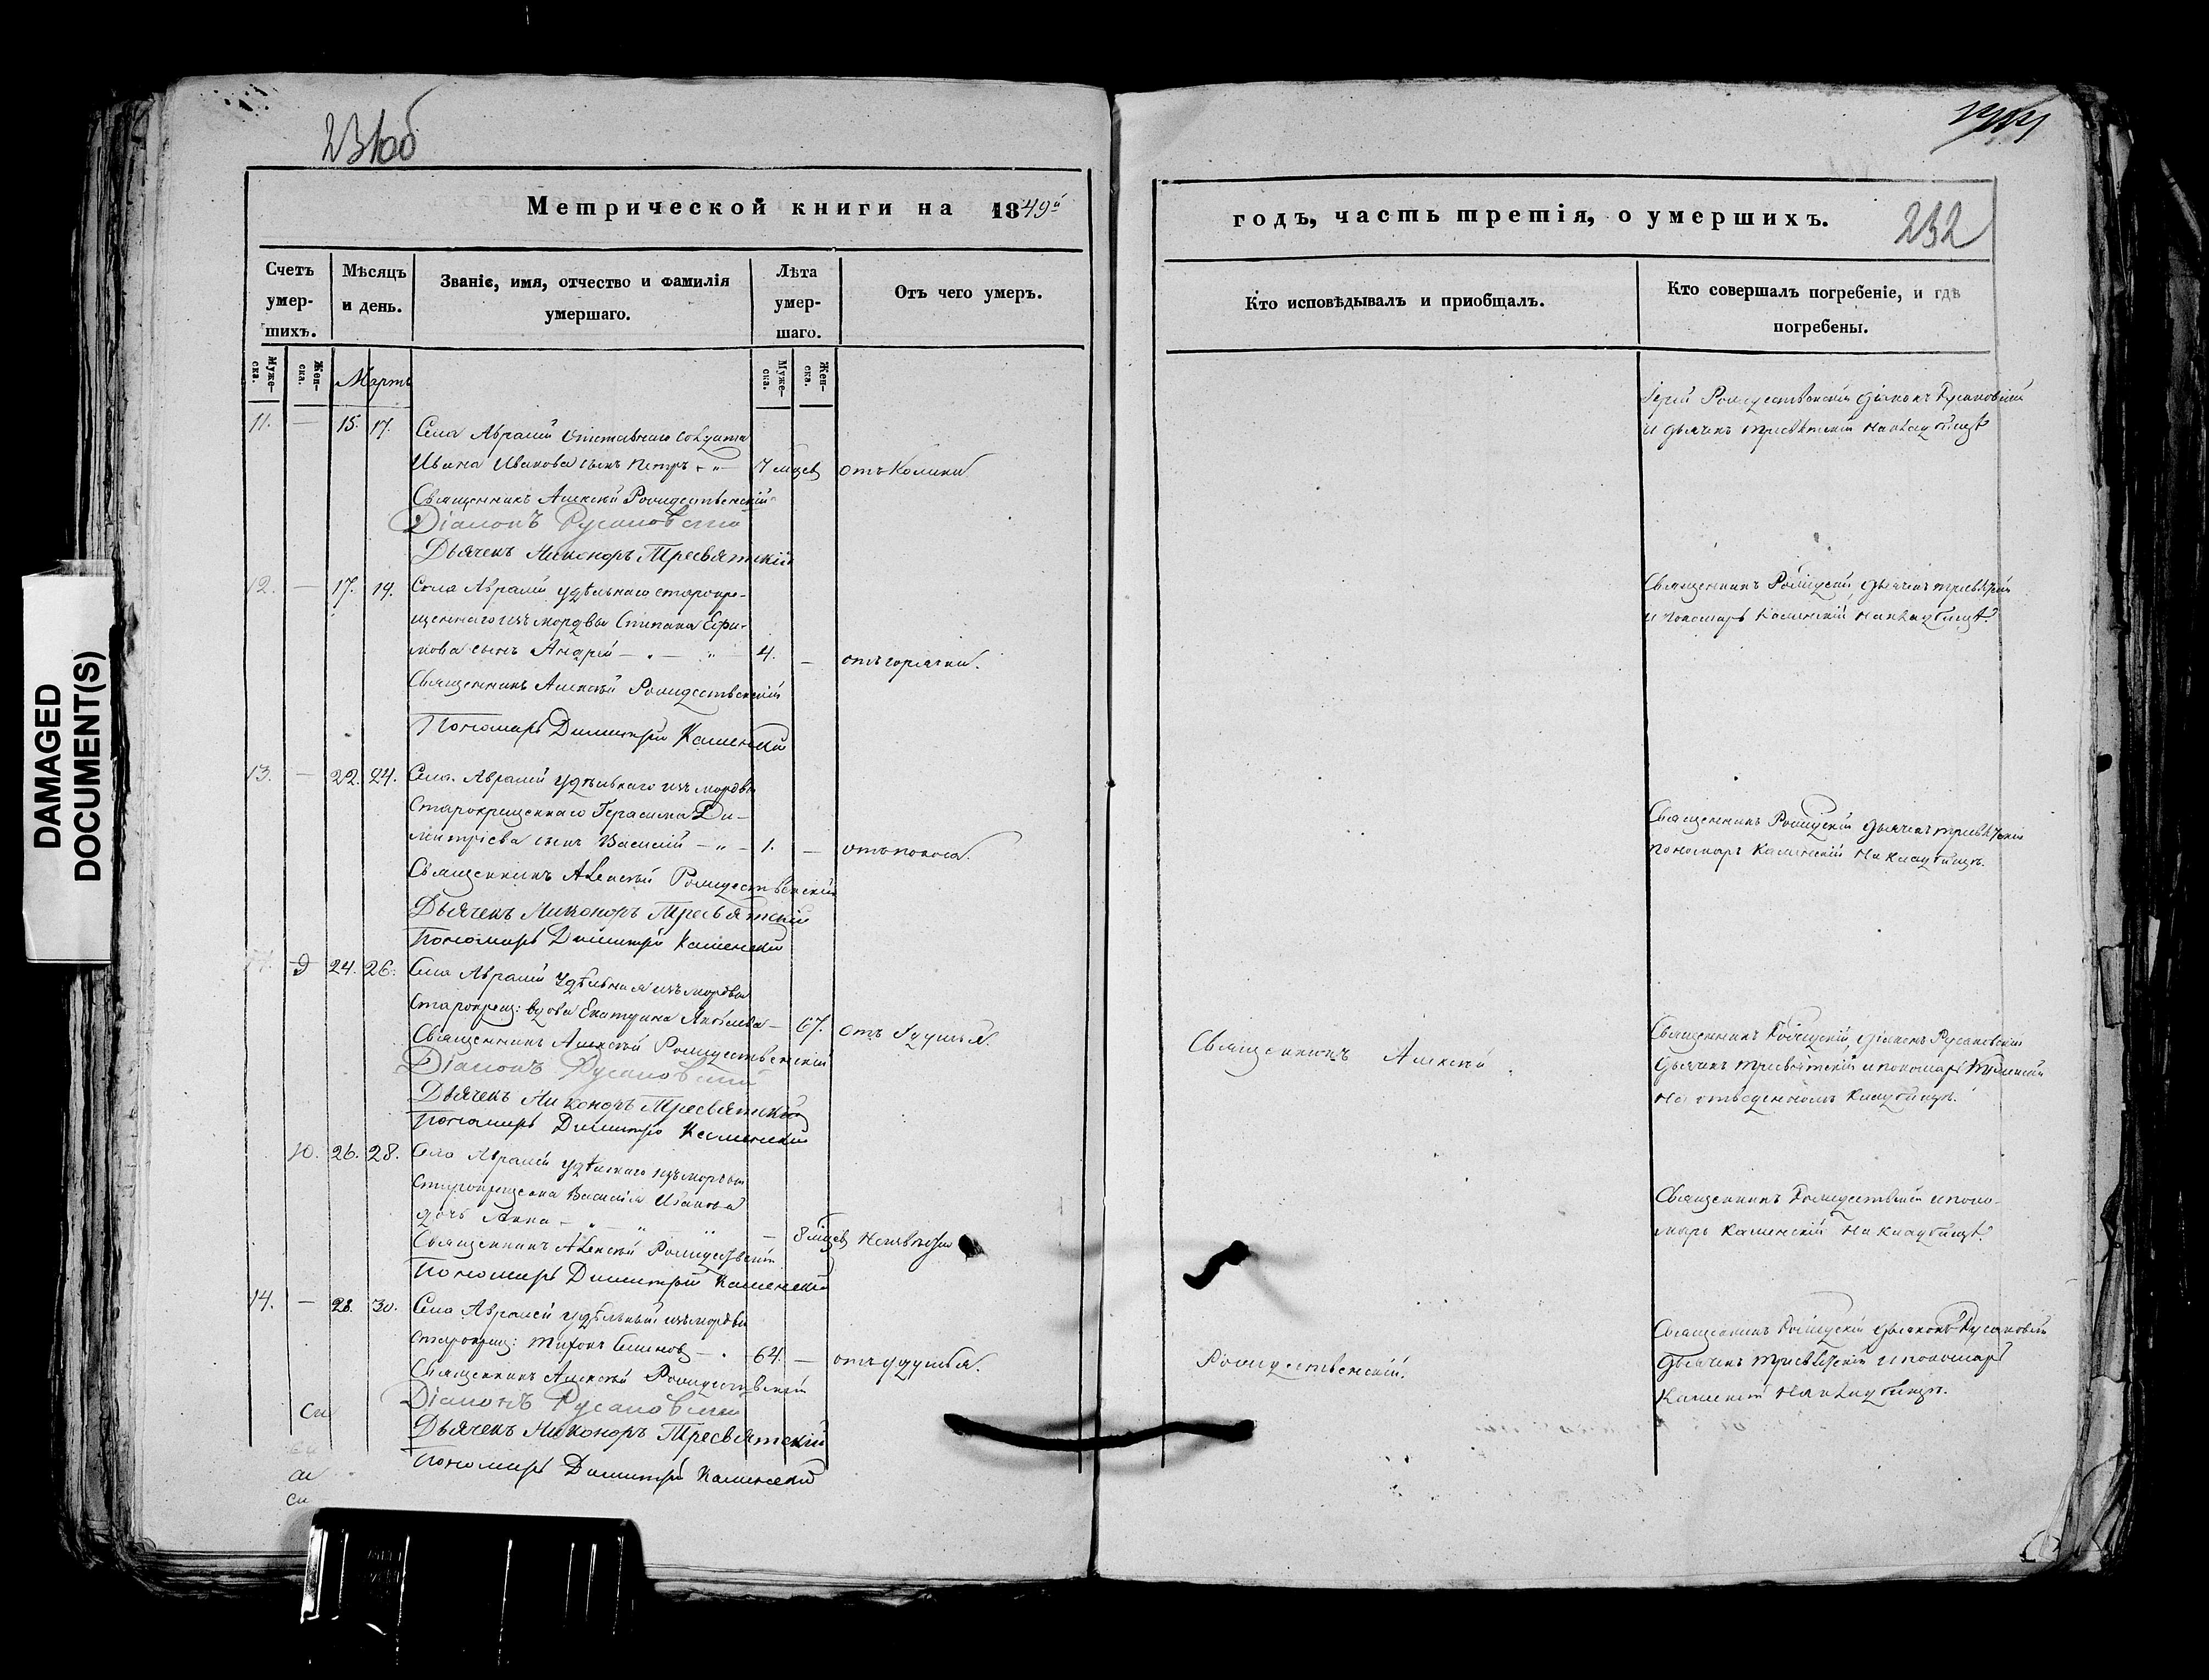 231об
Метрической книги на 1849й
Счетъ умер-шихъ.
Мѣсяцъ и день.
Званіе, имя, отчество и фамилія умершаго.
Лѣта умер-шаго.
Отъ чего умеръ.
Муже-ска.
Жен-ска.
Мартъ
Муже-ска.
Жен-ска.
11. — 15. 17. Села Авралей отставнаго солдата
Ивана Иванова сынъ Петръ 7 мцев отъ колики
Священникъ Алексѣй Рождественскій
Діаконъ Русановскій
Дьячекъ Никоноръ Тресвятскій
12. — 17. 19. Села Авралей удѣльнаго старокре-
щеннаго изъ мордвы Степана Ефи-
мова сынъ Андрей 4. — отъ горячки.
Священникъ Алексѣй Рождественскій
Пономарь Димитрій Каменскій
13. — 22. 24. Села Авралей удѣльнаго изъ мордвы
Старокрещеннаго Герасима Ди-
митріева сынъ Василій 1. — отъ поноса.
Священникъ Алексѣй Рождественскій
Дьячекъ Никоноръ Тресвятскій
Пономарь Димитрій Каменскій
9 24. 26. Села Авралей удѣльная изъ мордвы
Старокрещ: вдова Екатерина Яковлева — 67. отъ удушья.
Священникъ Алексѣй Рождественскій
Діаконъ Русановскій
Дьячекъ Никоноръ Тресвятскій
Пономарь Димитрій Каменскій
10. 26. 28. Села Авралей удѣльнаго изъ мордвы
Старокрещена Василія Иванова
дочь Анна — 8 мцев
Священникъ Алексѣй Рождественскій
Пономарь Димитрій Каменскій
14. — 28. 30. Села Авралей удѣльный изъ мордвы
Старокрещ: Тихонъ Семеновъ 64. — отъ удушья.
Священникъ Алексѣй Рождественскій
Діаконъ Русановскій
Дьячекъ Никоноръ Тресвятскій
Пономарь Димитрій Каменскій
годъ, часть третія, о умершихъ.
232
Кто исповѣдывалъ и пріобщалъ.
Кто совершалъ погребеніе, и гдѣ погребены.
Іерей Рождественскій діаконъ Русановскій
и дьячекъ Тресвятскій на кладбищѣ
Священникъ дьячекъ Тресвятскій
и пономарь Каменскій на кладбищѣ.
Священникъ дьячекъ Тресвятскій
пономарь Каменскій на кладбищѣ.
Священникъ Алексѣй
Священникъ діаконъ Русановскій
дьячекъ Тресвятскій и пономарь Каменскій
на отведенномъ кладбищѣ.
Священникъ Рождественскій и поно-
марь Каменскій на кладбищѣ.
Рождественскій.
Священникъ діаконъ Русановскій
дьячекъ Тресвятскій и пономарь
Каменскій на кладбищѣ.
DAMAGED
DOCUMENT(S)